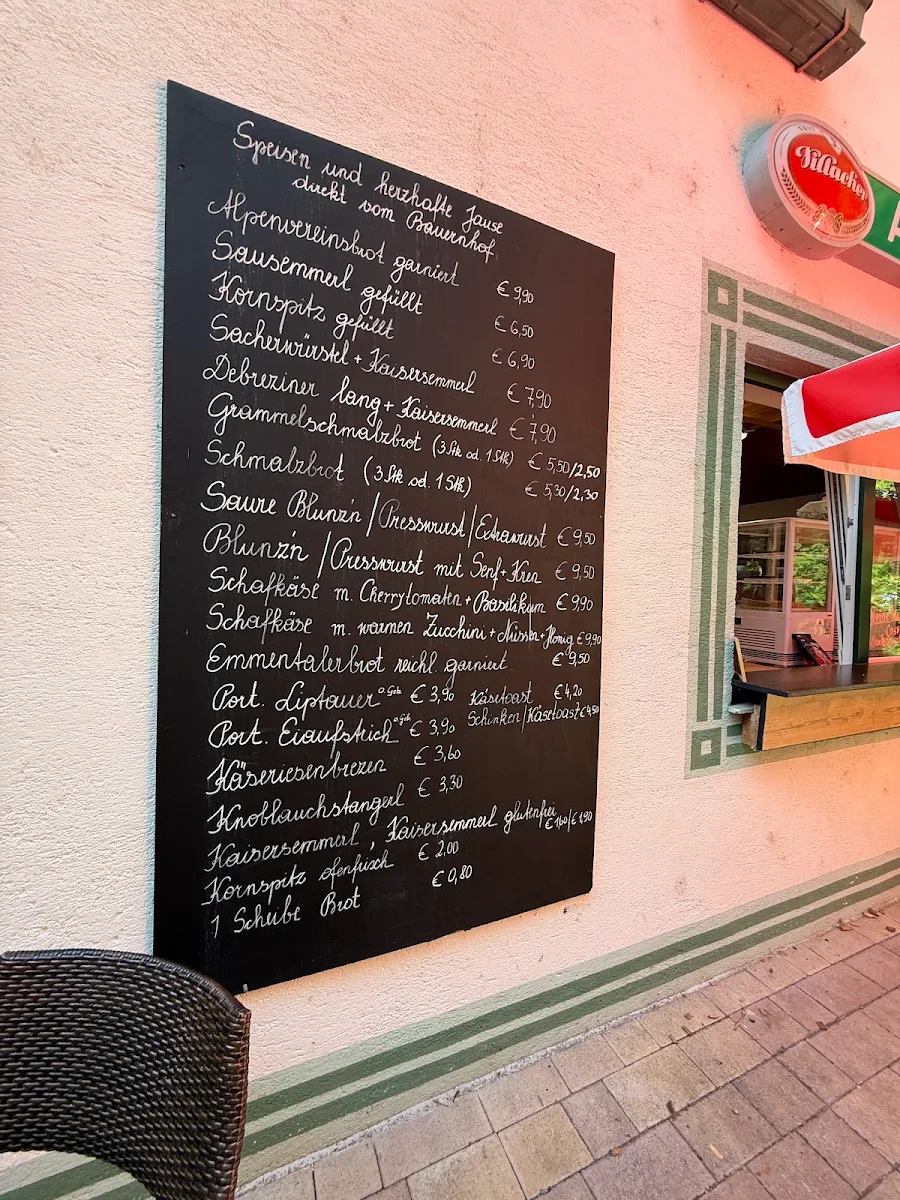 Speisen und herzhafte Jause
direkt vom Bauernhof
Alpenvereinsbrot garniert € 9,90
Sausemmerl gefüllt € 6,50
Kornspitz gefüllt € 6,90
Sacherwürstel + Kaisersemmerl € 7,90
Debreziner lang + Kaisersemmerl € 7,90
Grammelschmalzbrot (3 Stk od. 1 Stk) € 5,50/2,50
Schmalzbrot (3 Stk od. 1 Stk) € 5,30/2,30
Saure Blunz'n / Presswurst / Extrawurst € 9,50
Blunz'n / Presswurst mit Senf + Kren € 9,50
Schafkäse m. Cherrytomaten + Basilikum € 9,90
Schafkäse m. warmen Zucchini + Nüssen + Honig € 9,90
Emmentalerbrot reichl. garniert € 9,50
Port. Liptauer o. Geb. € 3,90 Käsetoast € 4,20
Port. Eiaufstrich o. Geb. € 3,90 Schinken/Käsetoast € 4,50
Käseriesenbrezen € 3,60
Knoblauchstangerl € 3,30
Kaisersemmerl, Kaisersemmerl glutenfrei € 1,60/€ 1,90
Kornspitz ofenfrisch € 2,00
1 Scheibe Brot € 0,80
Villacher